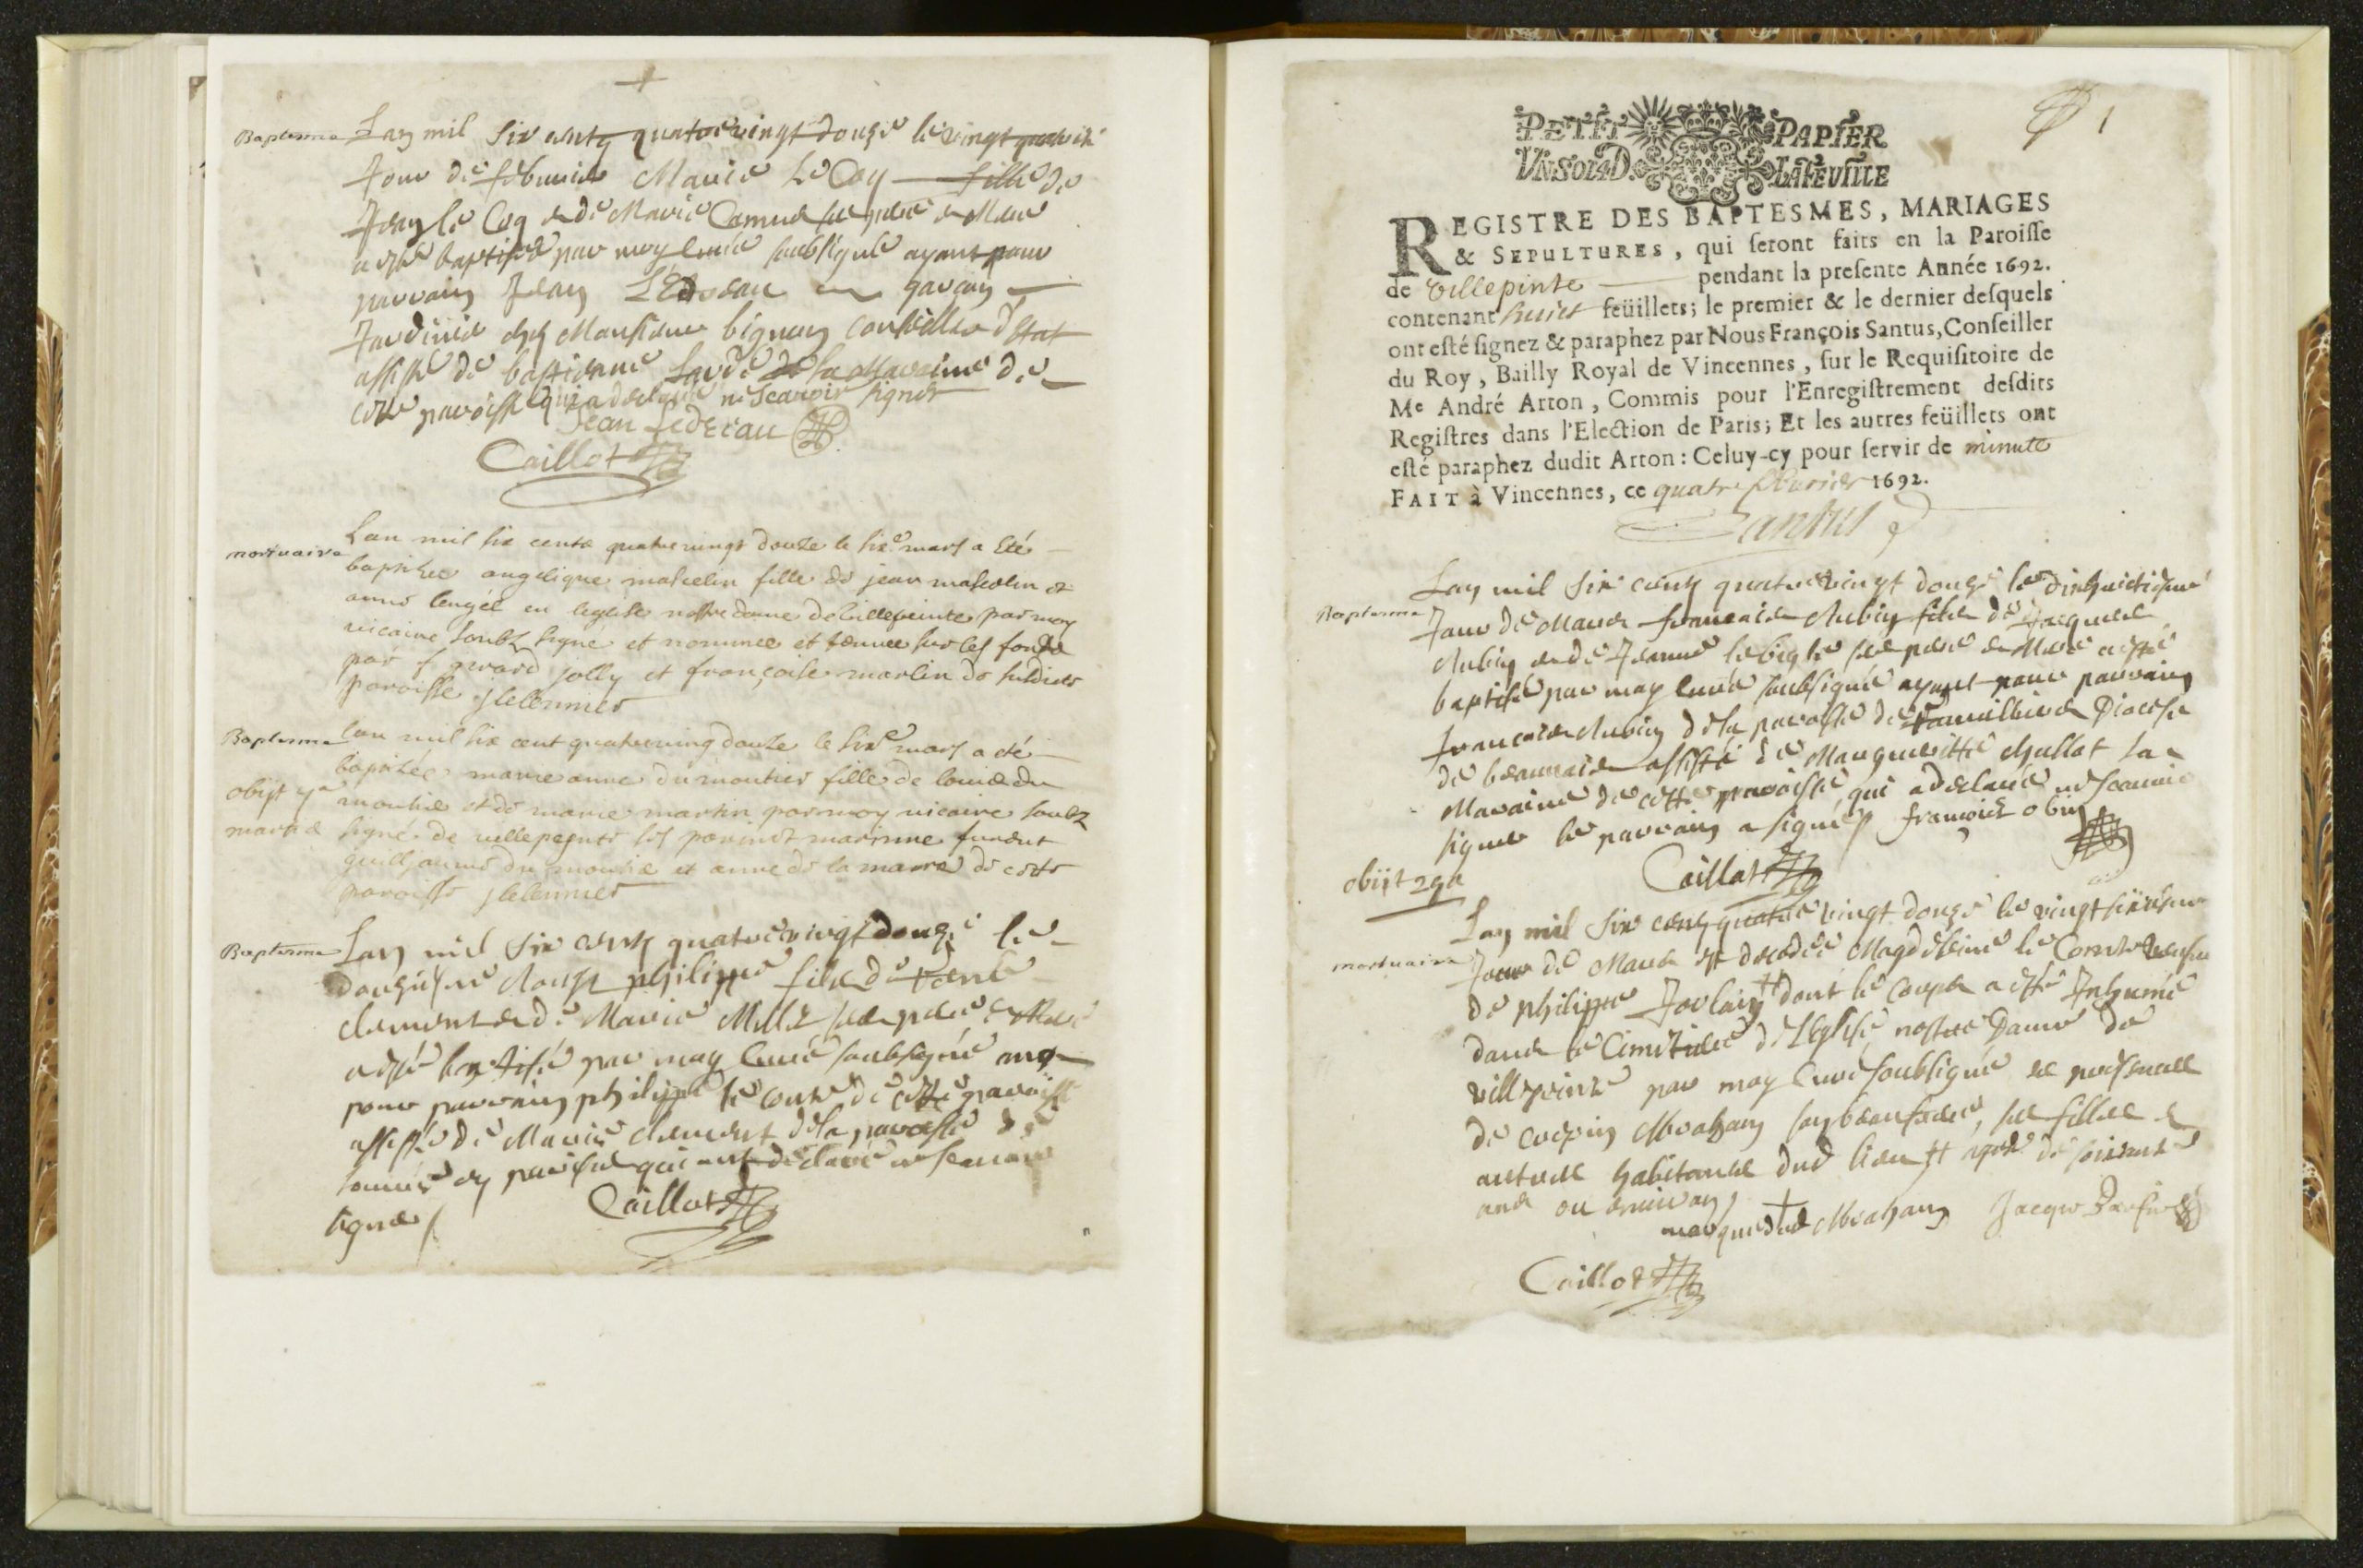 Baptesme
Lan mil six cents quatre vingt douze le vingt
Jour de febvrier Marie Le Coq fille de
Jean le Coq et de Marie Camus ses pere et Mere
a esté baptisée par moy Curé soubsigné ayant pour
parrain Jean Ledoseau garçon
Jardinier chez Monsieur bignon conseiller d'Estat
assisté de bastienne la Maraine de
cette paroisse qui a declaré ne scavoir signer
Jean
Caillot
mortuaire
Lan mil six cents quatre vingt douze le six.e mars a Eté
baptisée angelique mascelin fille de jean mascelin et
anne en leglise nostre dame de villepeinte par moy
vicaire soubz signe et nommee et tenue sur les fonds
par f gerard jolly et françoise marlin de susdicte
paroisse
Baptesme
lan mil six cent quatreving douze le six.e mars a été
baptizée marie anne du moutier fille de louis du
obiit
moutié et de marie martin par moy vicaire soubz
martii
signé de villepeynte ses parin et marinne furent
guiljaume du moutié et anne de la marre de cette
paroisse
Baptesme
Lan mil six cents quatre vingt douze le
Mars philippe fils de
clement et de Marie Millet ses pere et Mere
a esté baptisé par moy Curé soubsigné
pour parrain philippe le conte de cette paroisse
assisté de Marie clement de la paroisse de
en parisis qui ont declaré ne scavoir
signer
Caillot
1
PETIT PAPIER
VN SOL 4 D. LA FEVILLE
REGISTRE DES BAPTESMES, MARIAGES
& SEPULTURES, qui seront faits en la Paroisse
de Villepinte pendant la presente Année 1692.
contenant huict feüillets; le premier & le dernier desquels
ont esté signez & paraphez par Nous François Santus, Conseiller
du Roy, Bailly Royal de Vincennes, sur le Requisitoire de
Me André Arton, Commis pour l'Enregistrement desdits
Registres dans l'Election de Paris; Et les autres feüillets ont
esté paraphez dudit Arton: Celuy-cy pour servir de minute
FAIT à Vincennes, ce quatre febvrier 1692.
Santus
Lan mil six cents quatre vingt douze le dixhuictiesme
Baptesme
Jour de Mars francois Aubin fils de Jacques
Aubin et de Jeanne ses pere et Mere a esté
baptisé par moy Curé soubsigné ayant pour parrain
francois Aubin de la paroisse de Diocese
de beauvais assisté de Margueritte challot la
Maraine de cette paroisse, qui a declaré ne scavoir
signer le parrain a signé francois obin
Caillot
obiit
Lan mil six cents quatre vingt douze le vingt sixiesme
mortuaire
Jour de Mars est decedée Magdeleine le Comte
de philippe dont le corps a esté Inhumé
dans le Cimetiere de l'Eglise nostre Dame de
villepeinte par moy Curé soubsigné es presences
de crepin Abraham son beaufrere, ses filles et
autres habitants dud lieu agée de soixante
ans ou environ
marque dud Abraham Jacque
Caillot